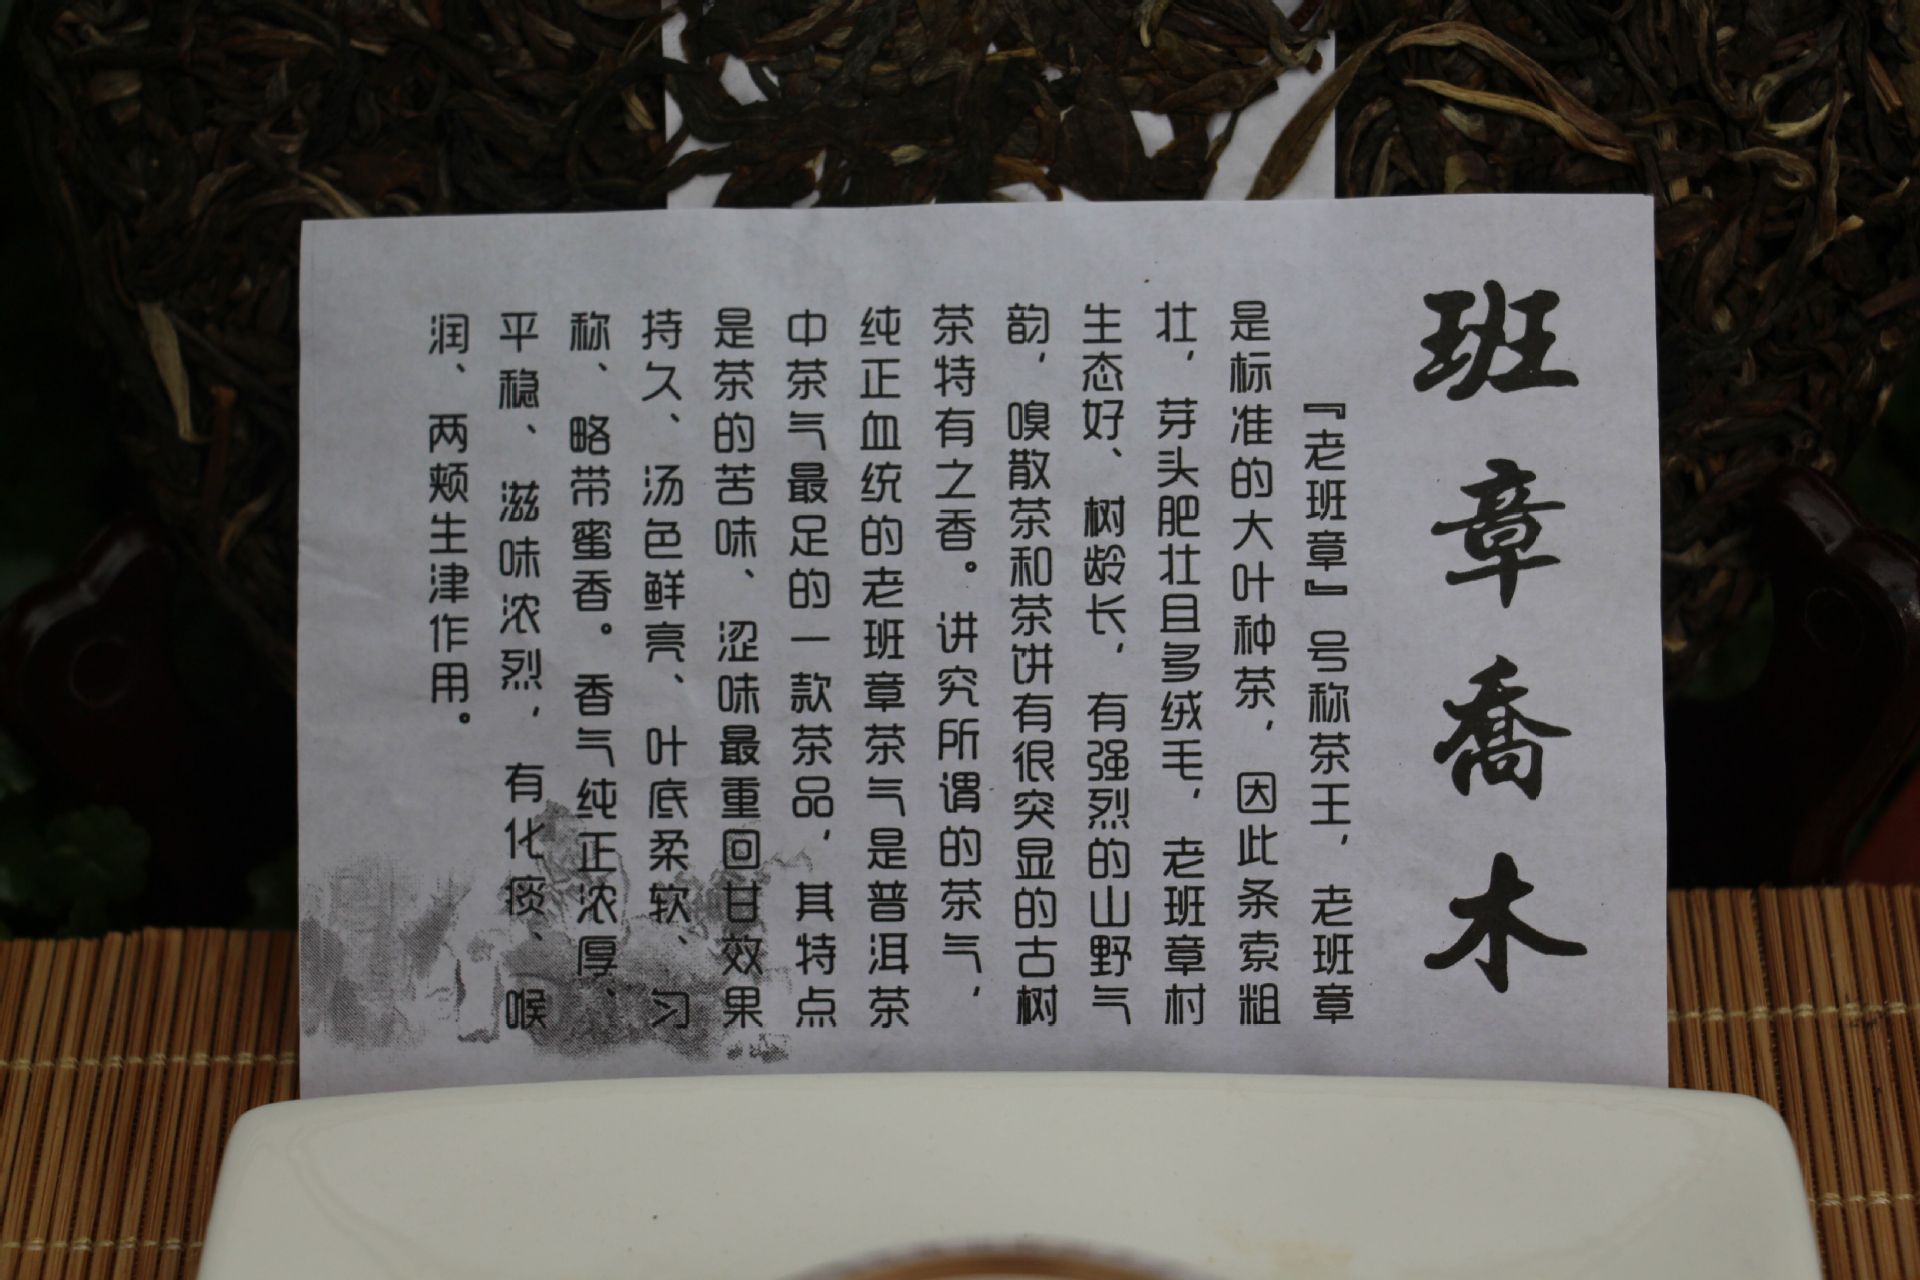 班章喬木
『老班章』号称茶王，老班章
是标准的大叶种茶，因此条索粗
壮，芽头肥壮且多绒毛，老班章村
生态好、树龄长，有强烈的山野气
韵，嗅散茶和茶饼有很突显的古树
茶特有之香。讲究所谓的茶气，
纯正血统的老班章茶气是普洱茶
中茶气最足的一款茶品，其特点
是茶的苦味、涩味最重回甘效果
持久、汤色鲜亮、叶底柔软、匀
称、略带蜜香。香气纯正浓厚、
平稳、滋味浓烈，有化痰、喉
润、两颊生津作用。